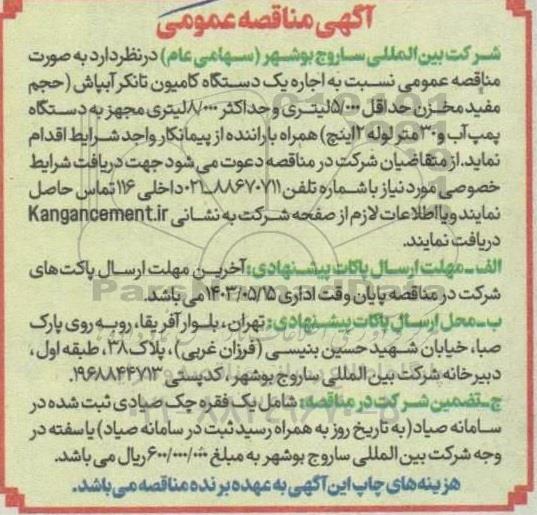 آگهی مناقصه عمومی
شرکت بین المللی ساروج بوشهر (سهامی عام) در نظر دارد به صورت
مناقصه عمومی نسبت به اجاره یک دستگاه کامیون تانکر آبپاش (حجم
مفید مخزن حداقل ۵/۰۰۰لیتری و حداکثر ۸/۰۰۰لیتری مجهز به دستگاه
پمپ آب و ۳۰ متر لوله ۲اینچ) همراه با راننده از پیمانکار واجد شرایط اقدام
نماید. از متقاضیان شرکت در مناقصه دعوت می شود جهت دریافت شرایط
خصوصی مورد نیاز با شماره تلفن ۸۸۶۷۰۷۱۱-۰۲۱ داخلی ۱۱۶ تماس حاصل
نمایند و یا اطلاعات لازم از صفحه شرکت به نشانی Kangancement.ir
دریافت نمایند.
الف-مهلت ارسال پاکات پیشنهادی: آخرین مهلت ارسال پاکت های
شرکت در مناقصه پایان وقت اداری ۱۴۰۳/۰۵/۱۵ می باشد.
ب-محل ارسال پاکات پیشنهادی: تهران، بلوار آفریقا، روبه روی پارک
صبا، خیابان شهید حسین بنیسی (فرزان غربی)، پلاک۳۸، طبقه اول،
دبیرخانه شرکت بین المللی ساروج بوشهر، کدپستی ۱۹۶۸۸۴۴۷۱۳.
ج-تضمین شرکت در مناقصه: شامل یک فقره چک صیادی ثبت شده در
سامانه صیاد (به تاریخ روز به همراه رسید ثبت در سامانه صیاد) یا سفته در
وجه شرکت بین المللی ساروج بوشهر به مبلغ ۶۰۰/۰۰۰/۰۰۰ ریال می باشد.
هزینه های چاپ این آگهی به عهده برنده مناقصه می باشد.